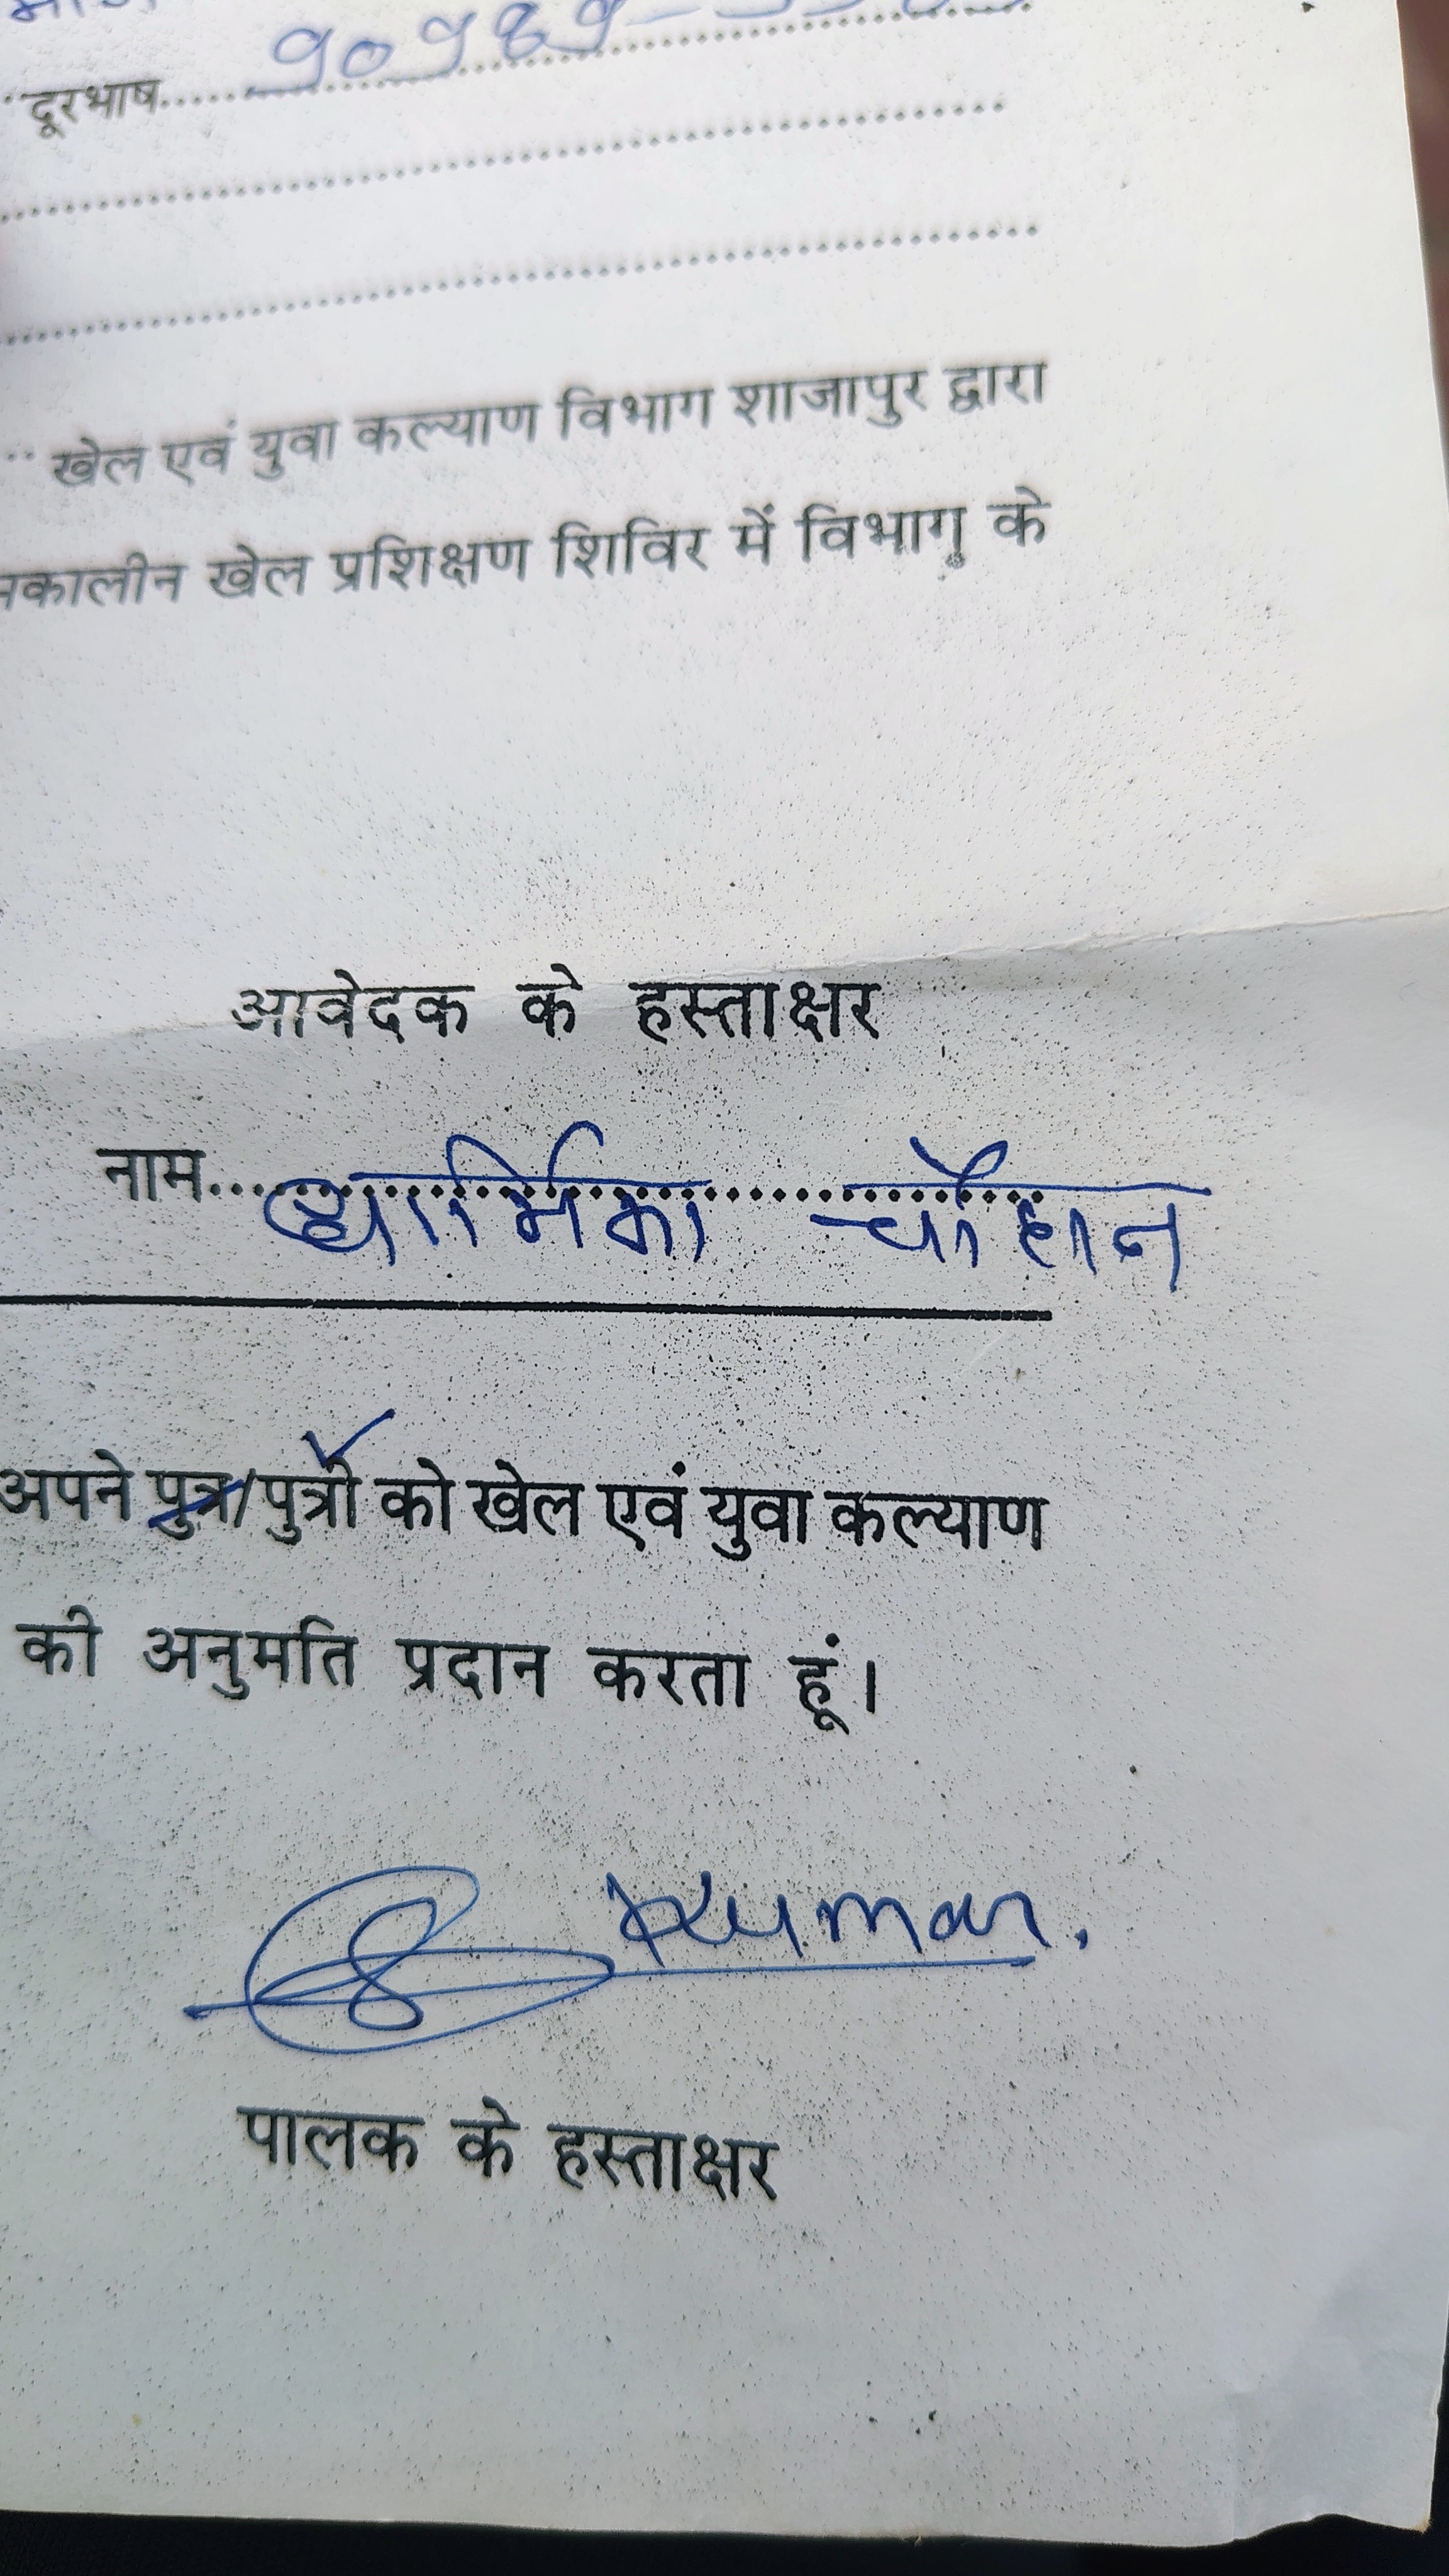 दूरभाष
खेल एवं युवा कल्याण विभाग शाजापुर द्वारा
खेल प्रशिक्षण शिविर में विभाग के
आवेदक के हस्ताक्षर
नाम धार्मिका चौहान
अपने पुत्र/पुत्री को खेल एवं युवा कल्याण
की अनुमति प्रदान करता हूं।
Kumar.
पालक के हस्ताक्षर